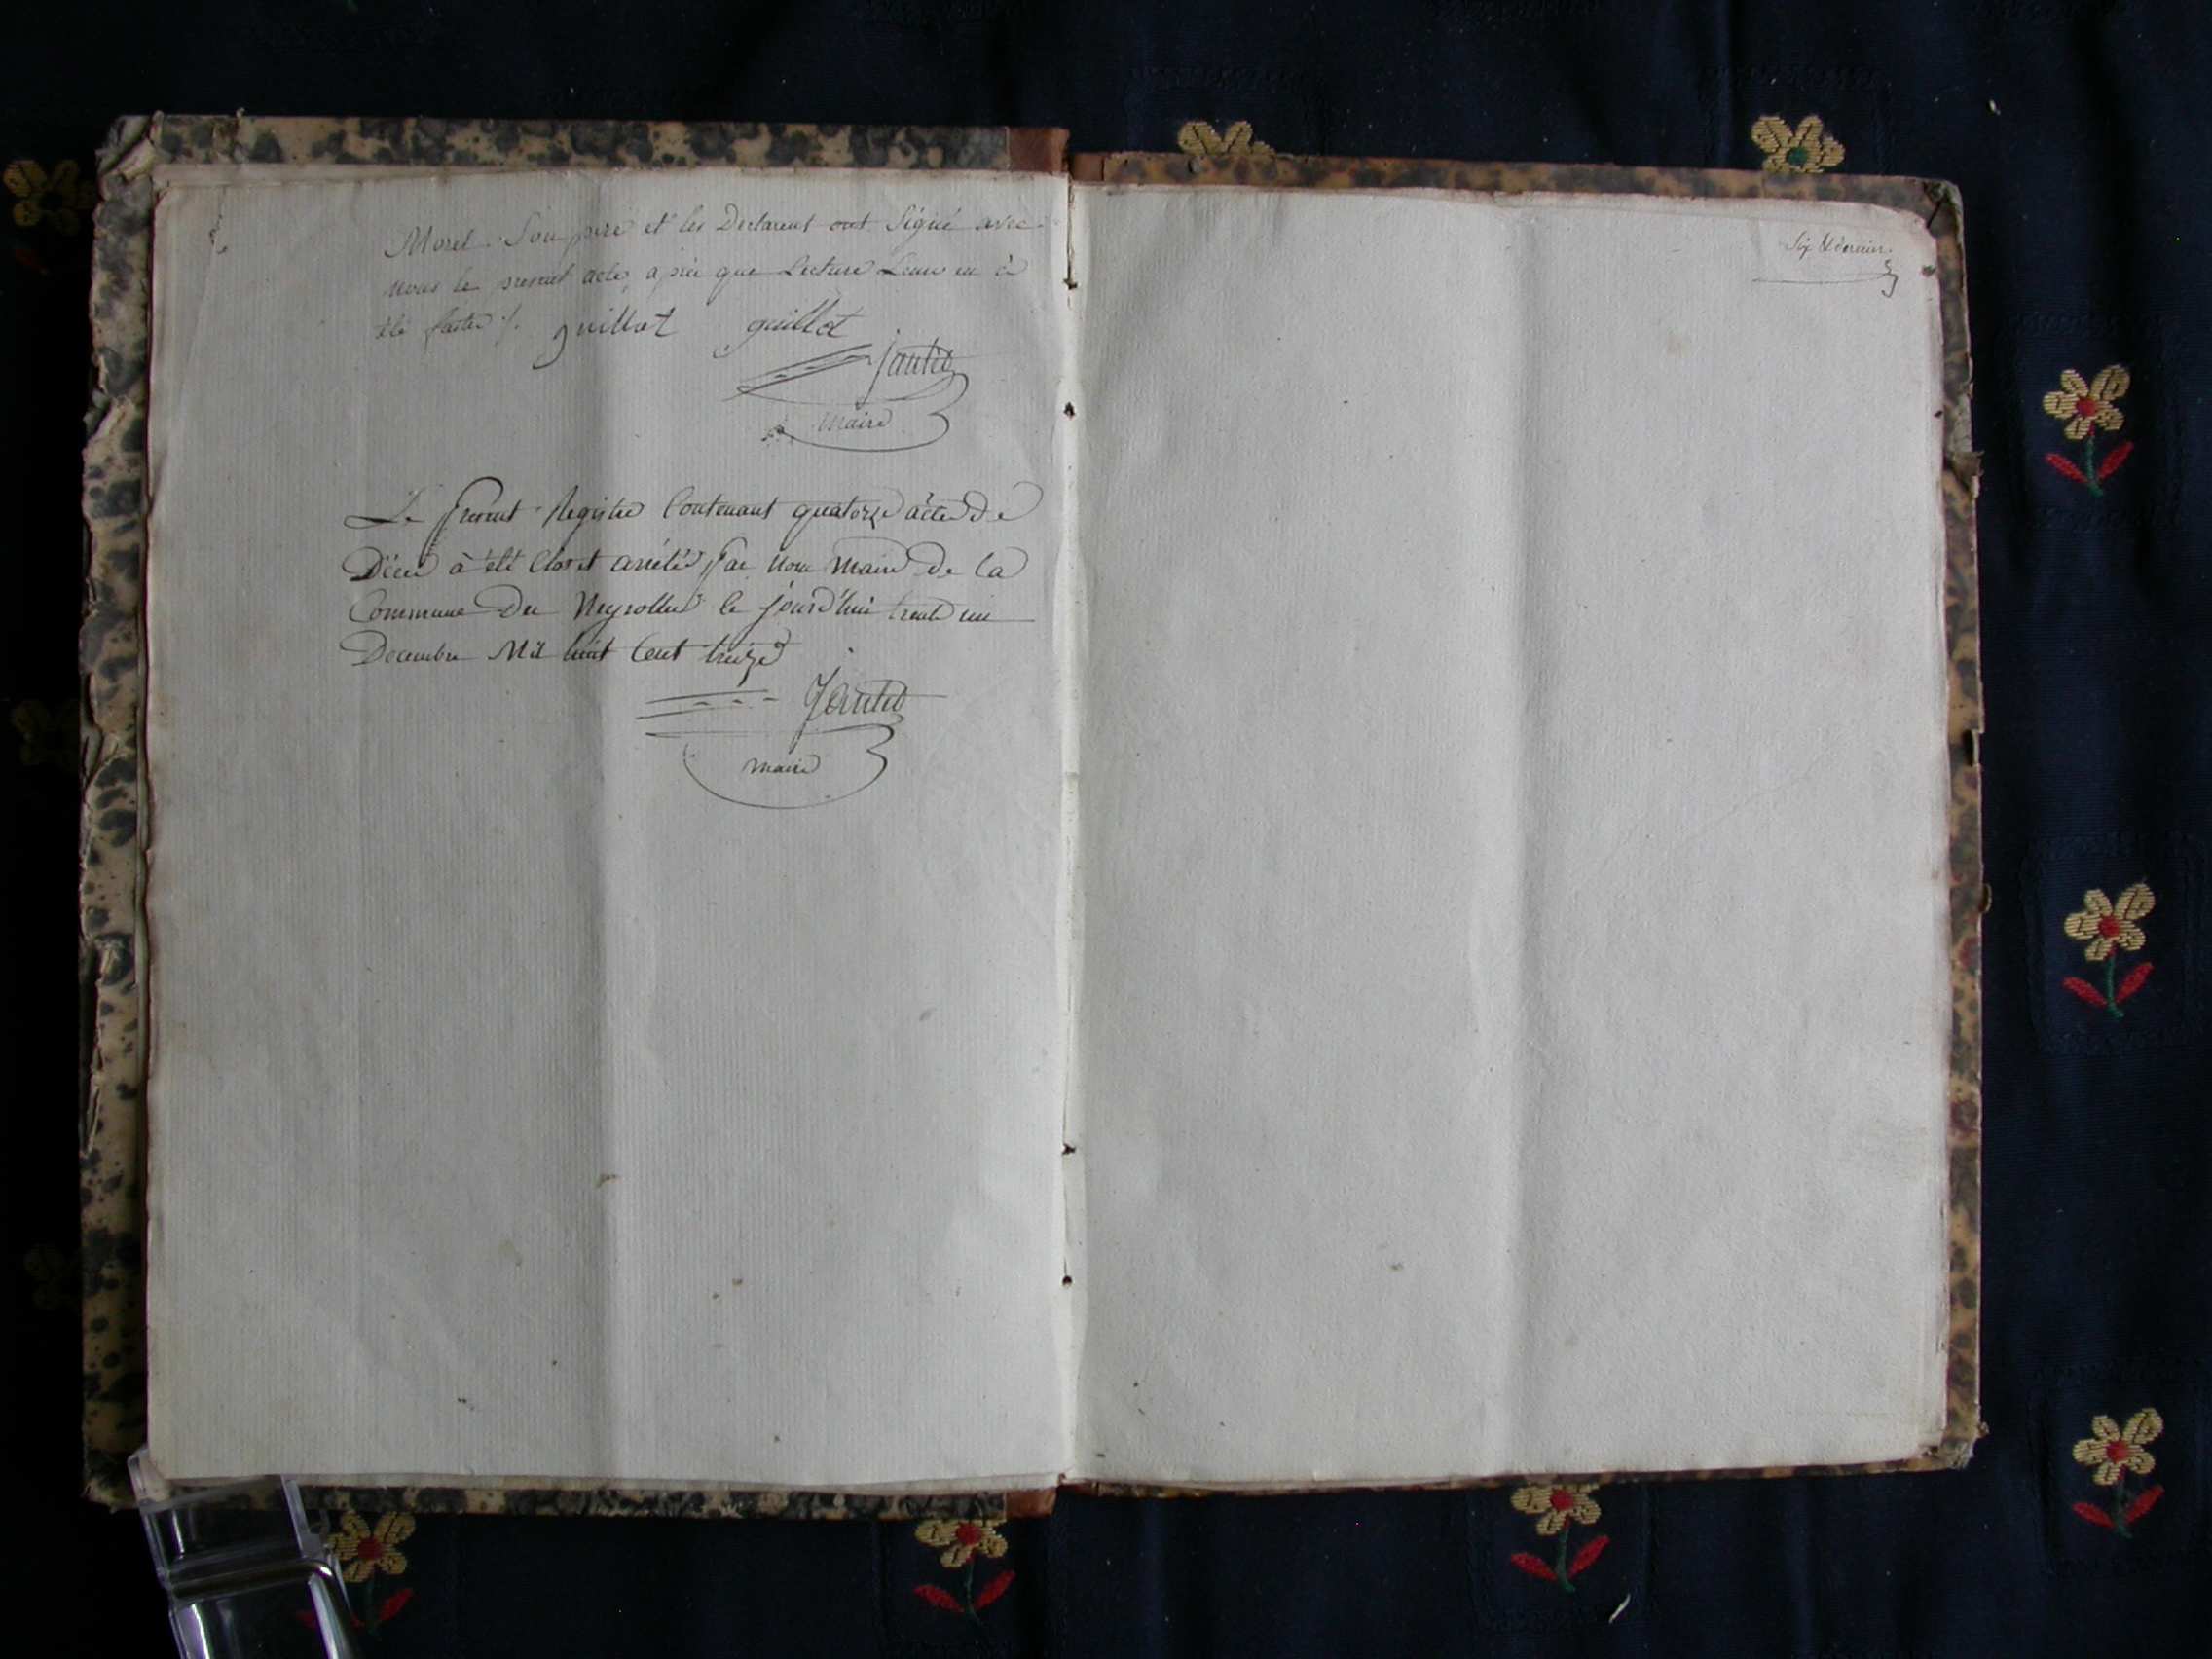 Morel. Son pere et les Declarent ont Signé avec
nous le present acte, après que Lecture Leur en à
été faite /. guillot guillot
Jantet
maire
Le present Registre Contenant quatorze acte de
Décès à été Clos et arrété par nous maire de la
Commune des Neyrolles le jourd'hui trente un
Decembre Mil huit Cent treize
Jantet
maire
Six & dernier.